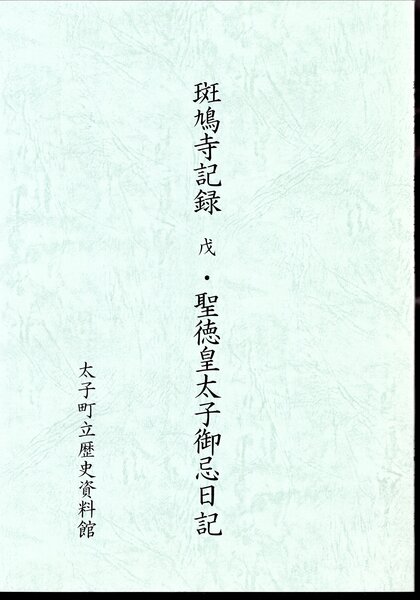 斑鳩寺記録 戊・聖徳皇太子御忌日記
太子町立歴史資料館